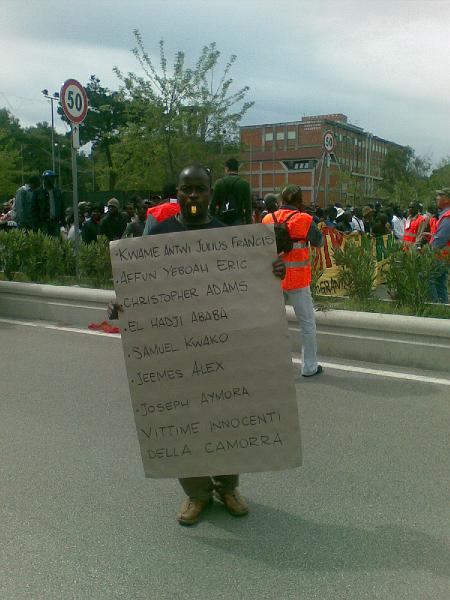 50
50
• KWAME ANTWI JULIUS FRANCIS
• AFFUN YEBOAH ERIC
• CHRISTOPHER ADAMS
• EL HADJI ABABA
• SAMUEL KWAKO
• JEEMES ALEX
• JOSEPH AYMORA
VITTIME INNOCENTI
DELLA CAMORRA